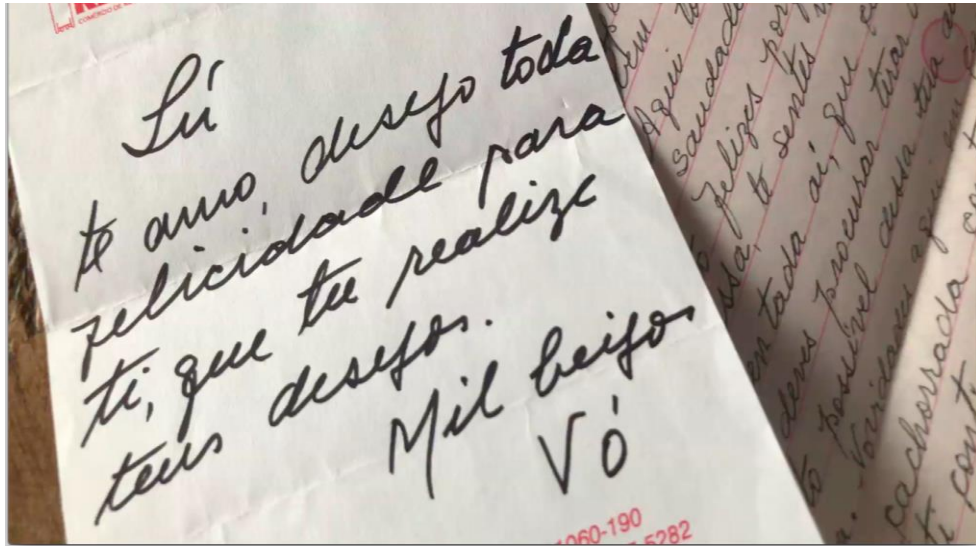 COMÉRCIO DE
Lú
te amo, desejo toda
felicidade para
ti, que tu realize
teus desejos.
Mil beijos
Vó
1060-190
5282
Aqui
saudade
felizes por
te sentes
aí, que
deves procurar tirar
possível dessa tua
Vordades aqui
cachorrada
te cont